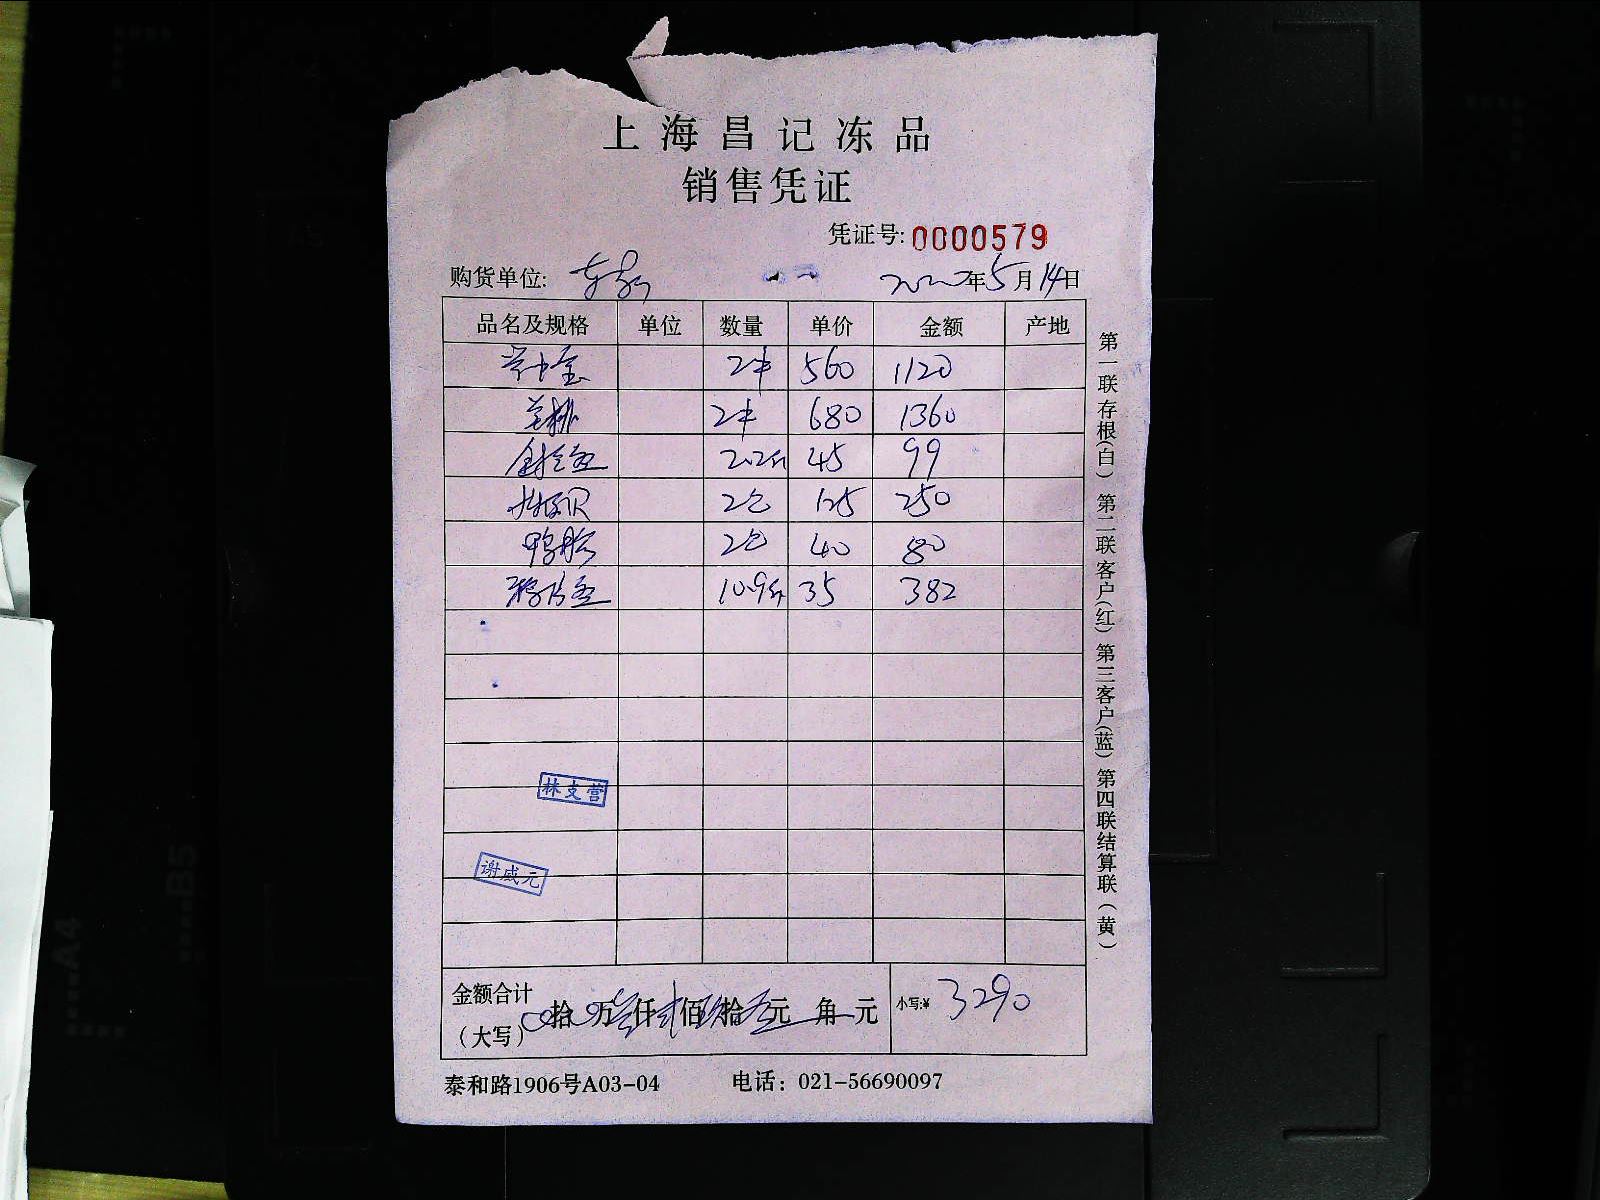 上海昌记冻品
销售凭证
凭证号: 0000579
购货单位: 2022年5月14日
品名及规格 单位 数量 单价 金额 产地
2 560 1120
2 680 1360
2.2斤 45 99
2包 125 250
鸭胗 2包 40 80
10.9斤 35 382
林支营
谢成元
金额合计 (大写) 拾万叁仟贰佰玖拾元角元 小写:¥ 3290
泰和路1906号A03-04 电话: 021-56690097
第一联存根(白) 第二联客户(红) 第三客户(蓝) 第四联结算联(黄)
A4
B5